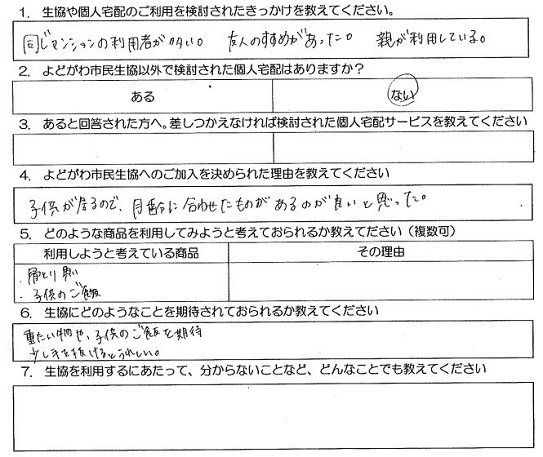 1. 生協や個人宅配のご利用を検討されたきっかけを教えてください。
同じマンションの利用者が多い。 友人のすすめがあった。 親が利用している。
2. よどがわ市民生協以外で検討された個人宅配はありますか？
ある ない
3. あると回答された方へ。差しつかえなければ検討された個人宅配サービスを教えてください
4. よどがわ市民生協へのご加入を決められた理由を教えてください
子供が居るので、月齢に合わせたものがあるのが良いと思った。
5. どのような商品を利用してみようと考えておられるか教えてださい（複数可）
利用しようと考えている商品 その理由
・子供のご飯
6. 生協にどのようなことを期待されておられるか教えてください
重たい物や、子供のご飯を期待
少し手を抜けるとうれしい。
7. 生協を利用するにあたって、分からないことなど、どんなことでも教えてください